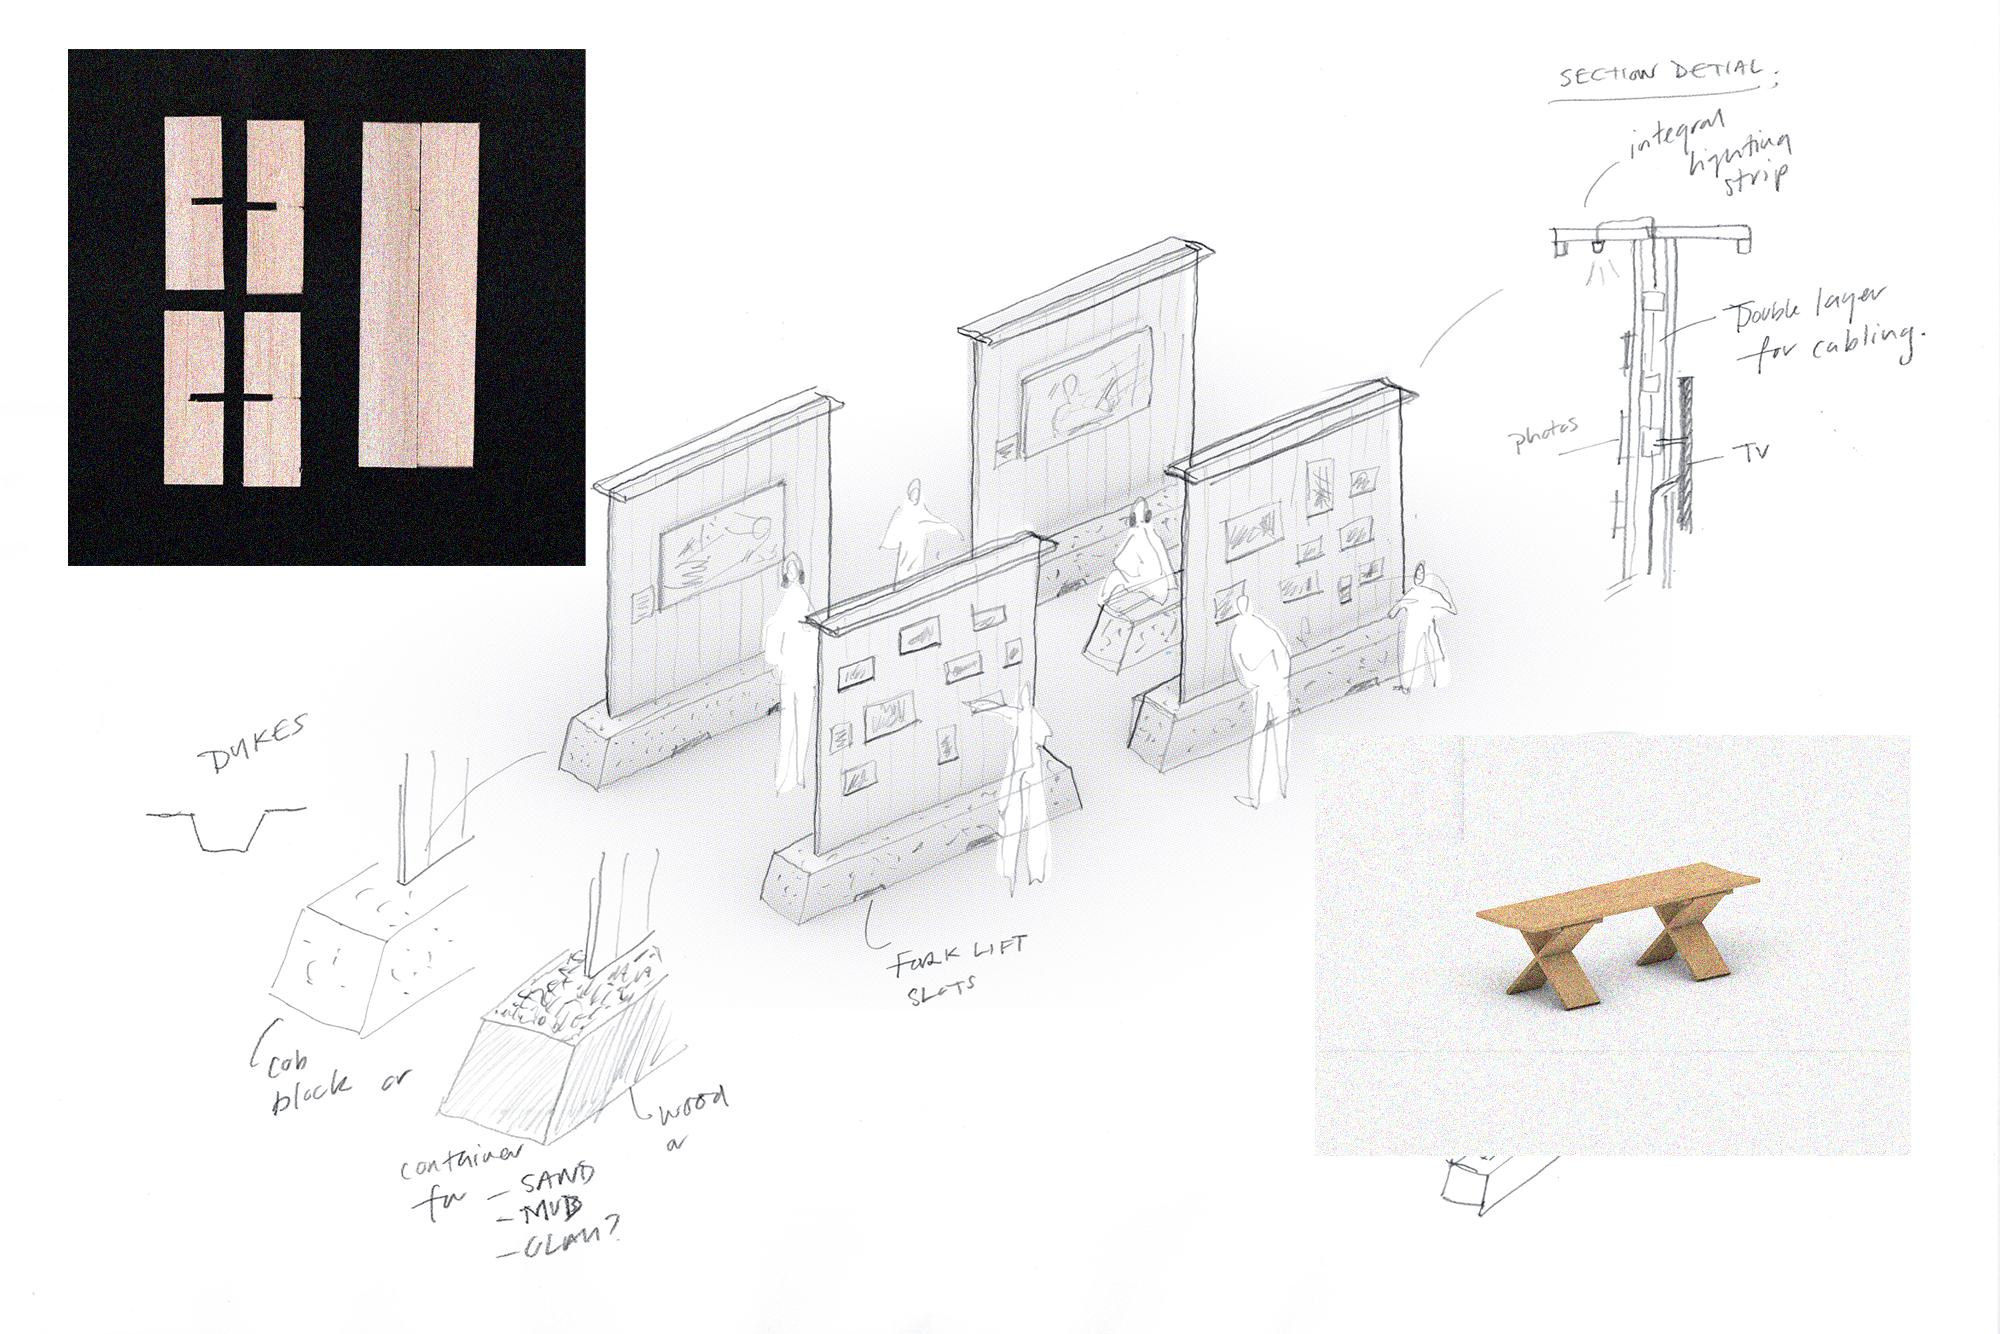 SECTION DETIAL;
integral
lighting
strip
Double layer
for cabling.
photos
TV
DYKES
FORK LIFT
SLOTS
cob
block or
wood
or
container
for – SAND
– MUD
– CLAY?